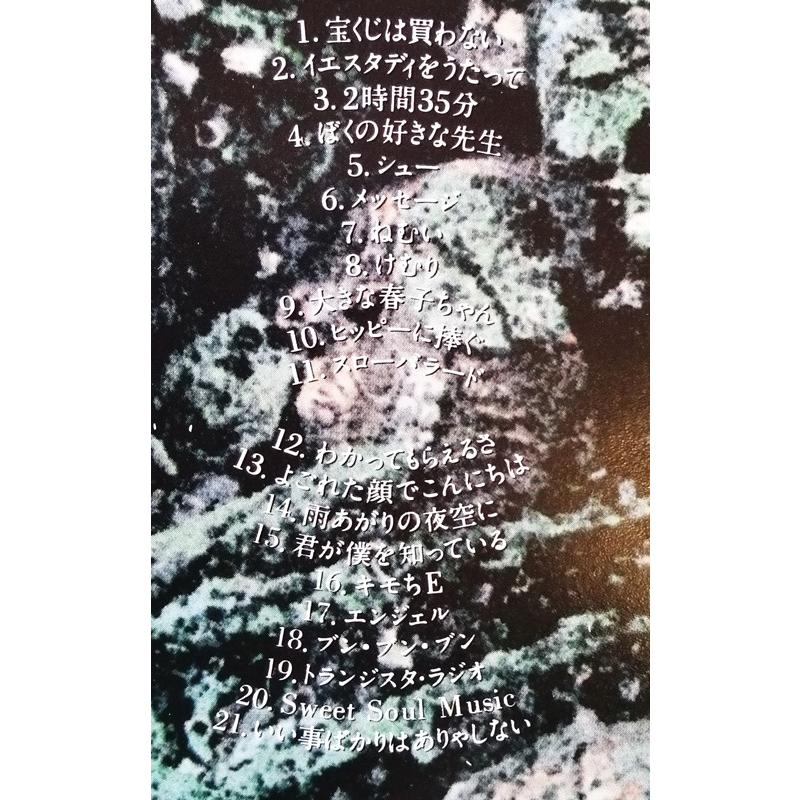 1. 宝くじは買わない
2. イエスタディをうたって
3. 2時間35分
4. ぼくの好きな先生
5. シュー
6. メッセージ
7. ねむい
8. けむり
9. 大きな春子ちゃん
10. ヒッピーに捧ぐ
11. スローバラード
12. わかってもらえるさ
13. よごれた顔でこんにちは
14. 雨あがりの夜空に
15. 君が僕を知っている
16. キモちE
17. エンジェル
18. ブン・ブン・ブン
19. トランジスタ・ラジオ
20. Sweet Soul Music
21. いい事ばかりはありゃしない